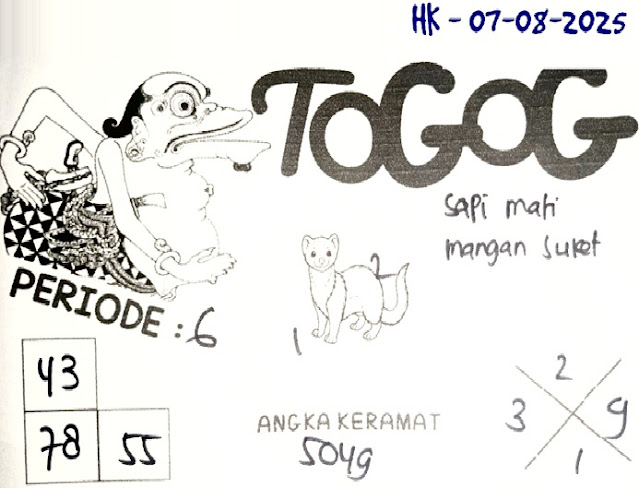 HK - 07-08-2025
TOGOG
sapi mati
mangan suket
PERIODE : 6
2
1
43
78 55
ANGKA KERAMAT
5049
2
3 9
1